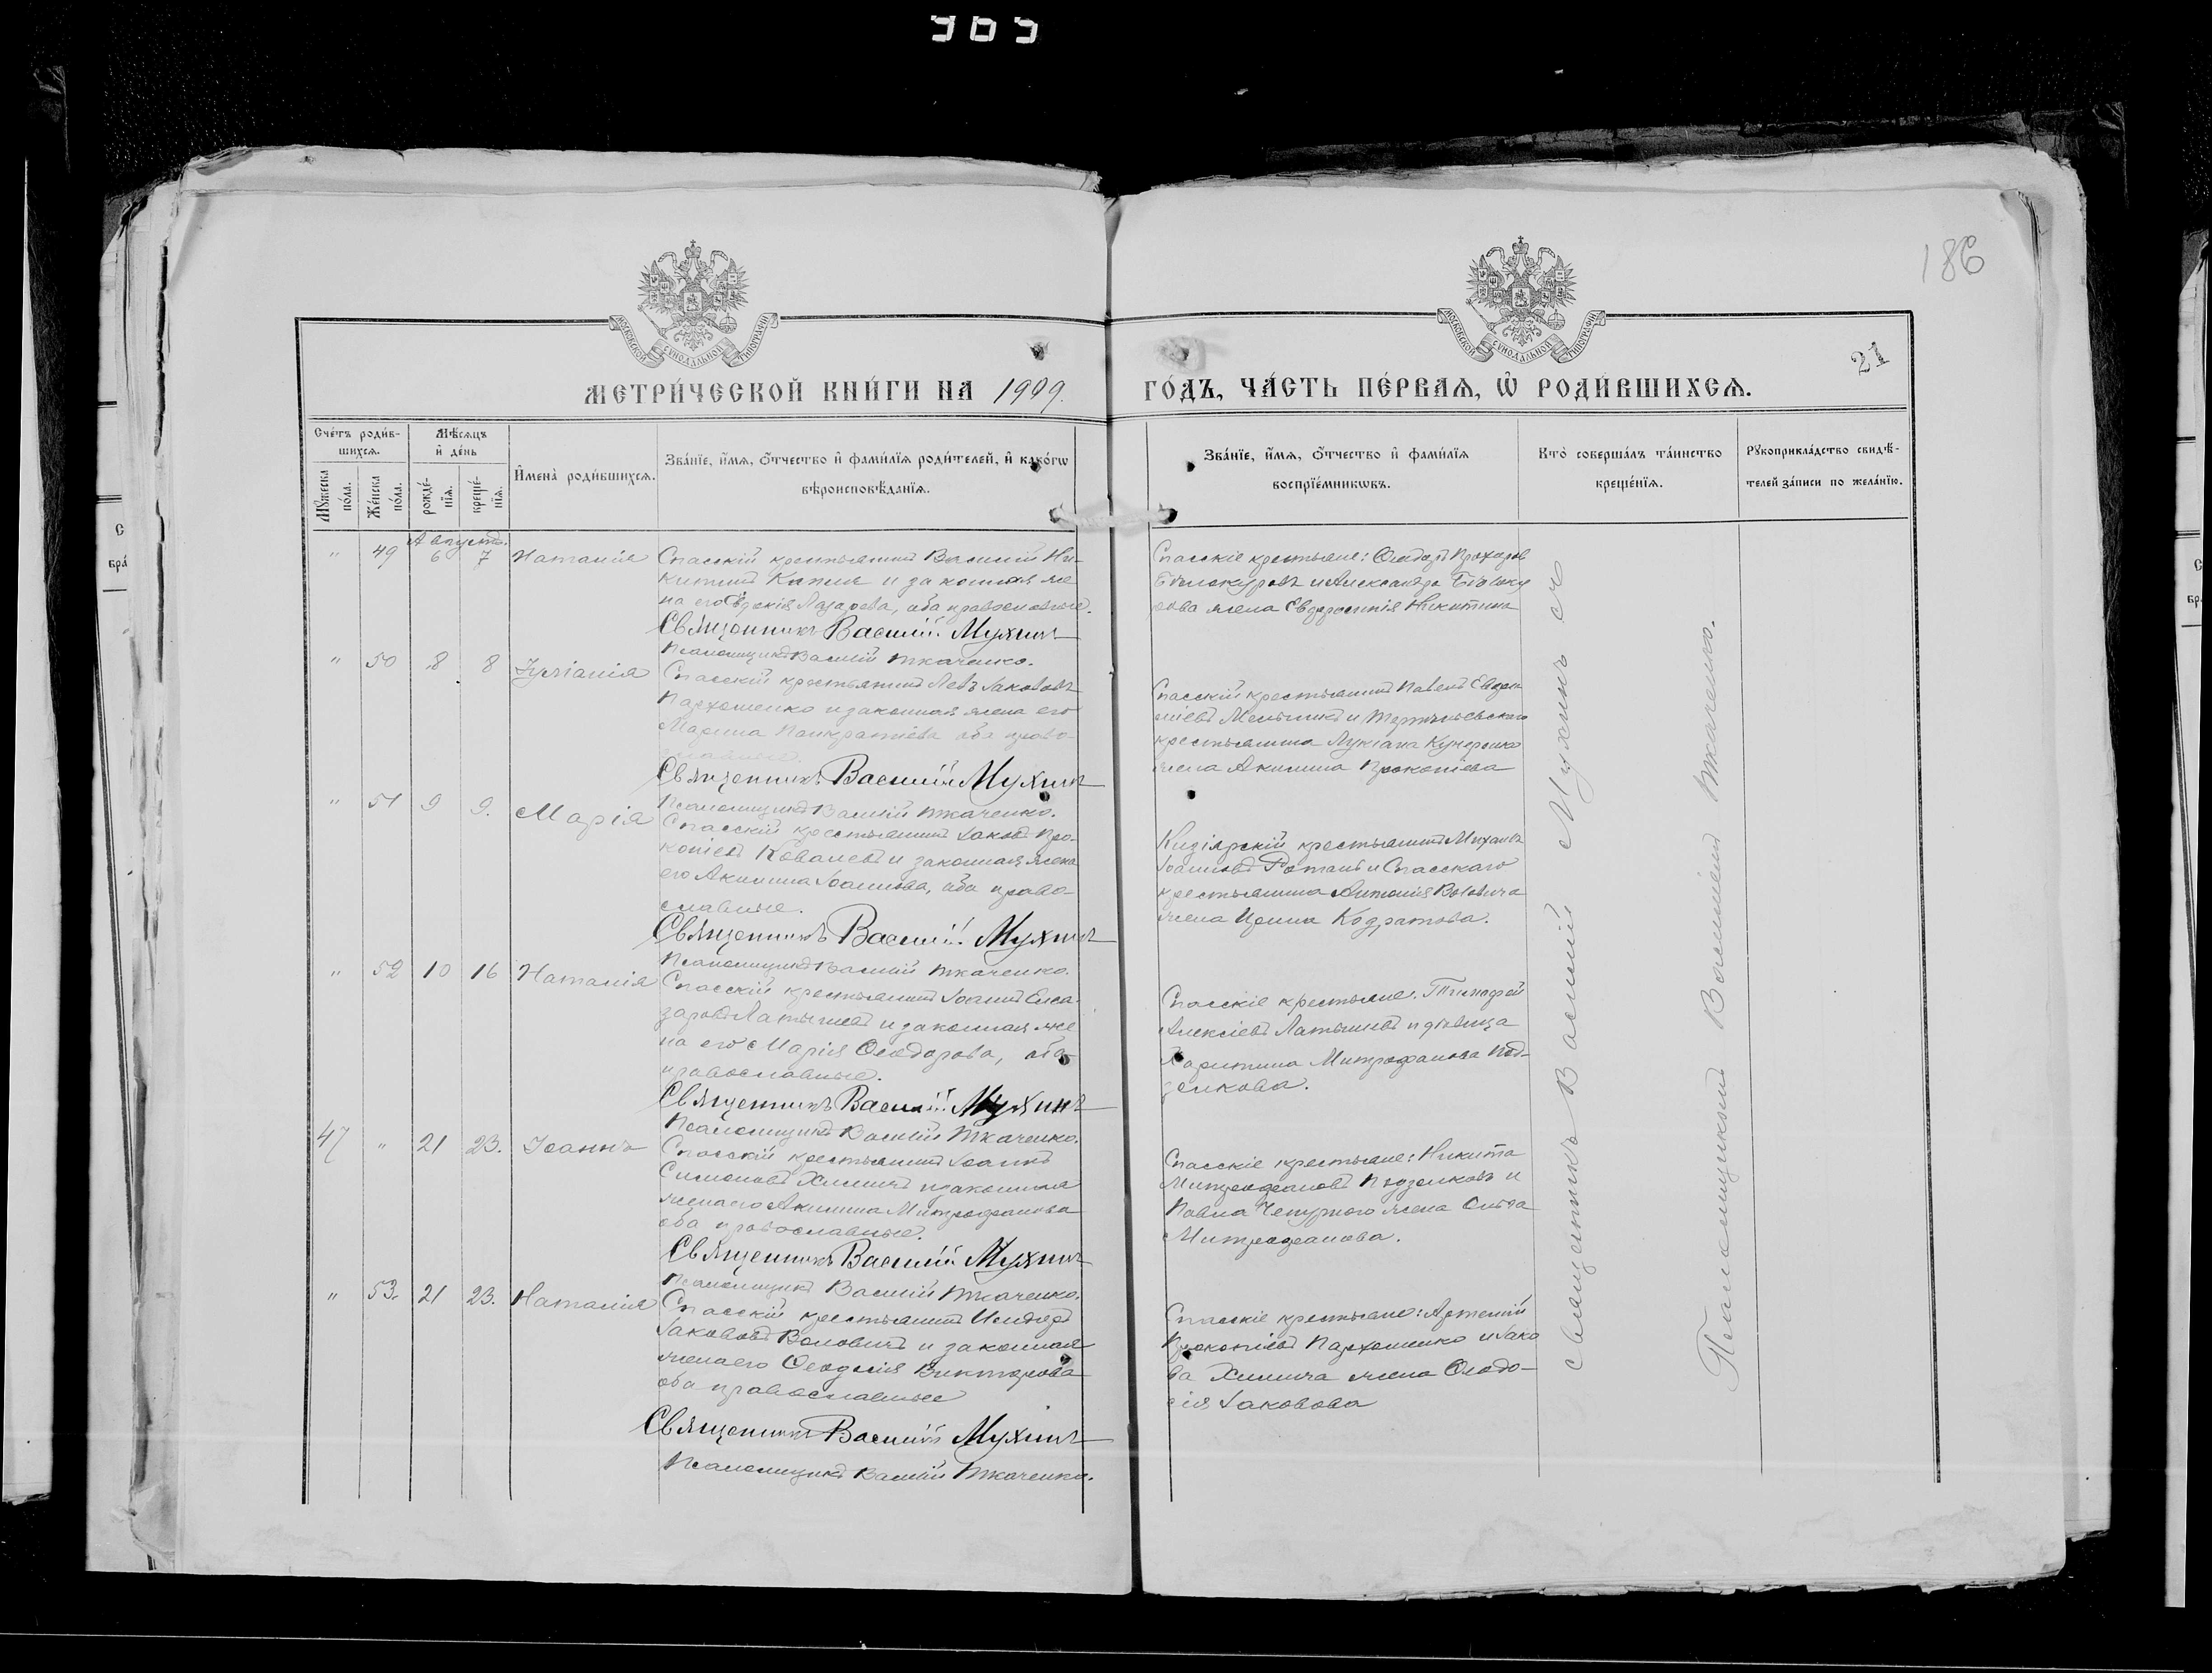 365
186
21
МОСКОВСКОЙ СѴНОДАЛЬНОЙ ТИПОГРАФІИ
МОСКОВСКОЙ СѴНОДАЛЬНОЙ ТИПОГРАФІИ
МЕТРИ́ЧЕСКОЙ КНИ́ГИ НА 1909. ГО́ДЪ, ЧА́СТЬ ПЕ́РВАѦ, Ѡ҆ РОДИ́ВШИХСѦ.
Сче́тъ роди́в-
шихсѧ.
Мꙋ́жеска по́ла.
Же́нска по́ла.
Мѣ́сѧцъ и҆ де́нь
рожде́-нїѧ.
креще́-нїѧ.
И҆мена̀ роди́вшихсѧ.
Зва́нїе, и҆́мѧ, ѻ҆́тчество и҆ фами́лїѧ роди́телей, и҆ како́гѡ
вѣроисповѣ́данїѧ.
Зва́нїе, и҆́мѧ, ѻ҆́тчество и҆ фами́лїѧ
воспрїе́мникѡвъ.
Кто̀ соверша́лъ та́инство
креще́нїѧ.
Рꙋкоприкла́дство свидѣ́-
телей за́писи по жела́нїю.
Августъ.
" 49 6 7 Наталія Спасскій крестьянинъ Василій Ни-
китинъ и законная же-
на его Лазарева, оба православные.
Священникъ Василій Мухинъ
Псаломщикъ Василій Ткаченко.
Спасскіе крестьяне: Ѳеодоръ Прохоров
Бѣлокуровъ и Александра Бѣлоку
рова жена Евфросинія Никитина
" 50 8 8 Іуліанія Спасскій крестьянинъ Левъ Іакововъ
Пархоменко и законная жена его
Марина Панкратіева оба право-
славные.
Священникъ Василій Мухинъ
Псаломщикъ Василій Ткаченко.
Спасскій крестьянинъ Павелъ
Мельникъ и
крестьянина Лукіана
жена Акилина Прокопіева
" 51 9 9. Марія Спасскій крестьянинъ Іаковъ Про-
копіевъ Ковалевъ и законная жена
его Акилина Іоаннова, оба право-
славные.
Священникъ Василій Мухинъ
Псаломщикъ Василій Ткаченко.
Кизіярскій крестьянинъ Михаилъ
Іоанновъ Ротань и Спасскаго
крестьянина Антонія Воловича
жена Ирина Кодратова.
" 52 10 16 Наталія Спасскій крестьянинъ Іоаннъ Елеа-
заровъ Латышевъ и законная же
на его Марія Ѳеодорова, оба
православные.
Священникъ Василій Мухинъ
Псаломщикъ Василій Ткаченко.
Спасскіе крестьяне: Тимофей
Алексіевъ Латышевъ и дѣвица
Харитина Митрофанова Под-
золкова.
47 " 21 23. Іоаннъ Спасскій крестьянинъ Іоаннъ
Симоновъ Химичъ и законная
жена его Акилина Митрофанова
оба православные.
Священникъ Василій Мухинъ
Псаломщикъ Василій Ткаченко.
Спасскіе крестьяне: Никита
Митрофановъ Подзолковъ и
Павла Чепурного жена Ольга
Митрофанова.
" 53. 21 23. Наталія Спасскій крестьянинъ Исидоръ
Іакововъ Воловичъ и законная
жена его Ѳеодосія Викторова
оба православные
Священникъ Василій Мухинъ
Псаломщикъ Василій Ткаченко.
Спасскіе крестьяне: Артемій
Прокопіевъ Пархоменко и Іако
ва Химича жена Ѳеодо-
сія Іаковова
Священникъ Василій Мухинъ съ
Псаломщикомъ Василіемъ Ткаченко.